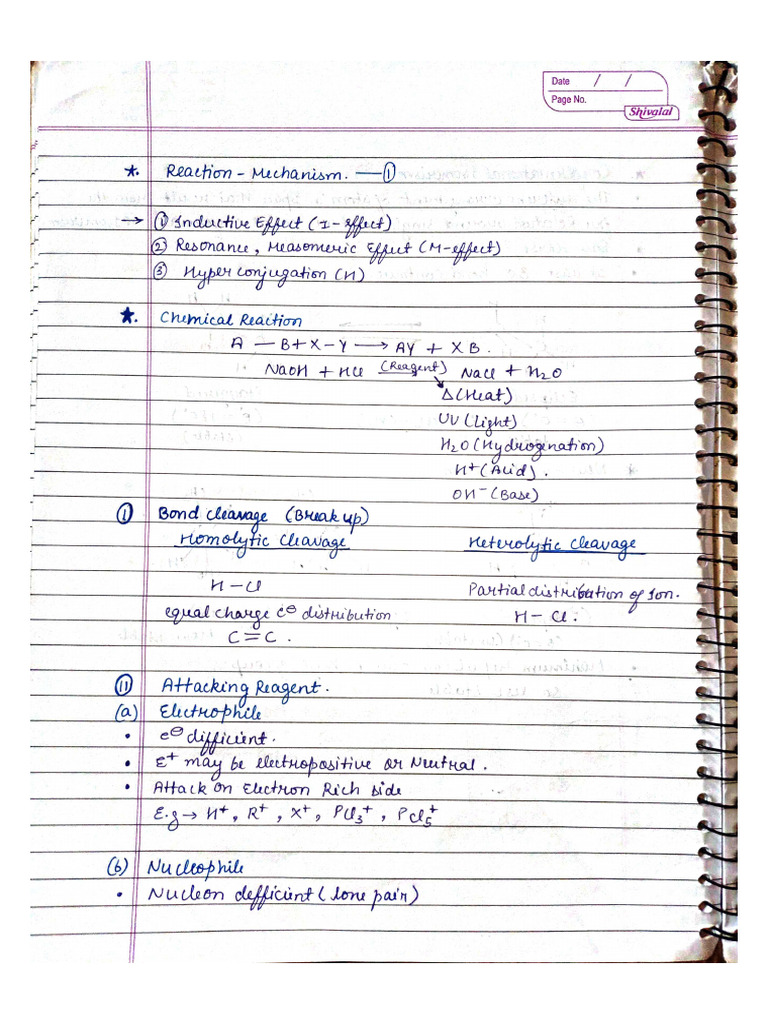 Date / /
Page No.
Shivalal
*. Reaction - Mechanism. — ①
→ ① Inductive Effect (I-effect)
② Resonance, Measomeric Effect (M-effect)
③ Hyper conjugation (H)
*. Chemical Reaction
A — B + X - Y ⟶ AY + XB.
NaOH + HCl (Reagent) NaCl + H2O
Δ (Heat)
UV (Light)
H2O (Hydrogination)
H+ (Acid).
OH- (Base)
① Bond Cleavage (Break up)
Homolytic Cleavage Heterolytic Cleavage
H - Cl Partial distribution of Ion.
equal charge e⊖ distribution H - Cl:
C = C.
⑪ Attacking Reagent.
(a) Electrophile
• e⊖ difficient.
• E+ may be electropositive or Neutral.
• Attack on Electron Rich side
E.g → H+, R+, X+, PCl3+, PCl5+
(b) Nucleophile
• Nucleon defficient (lone pair)